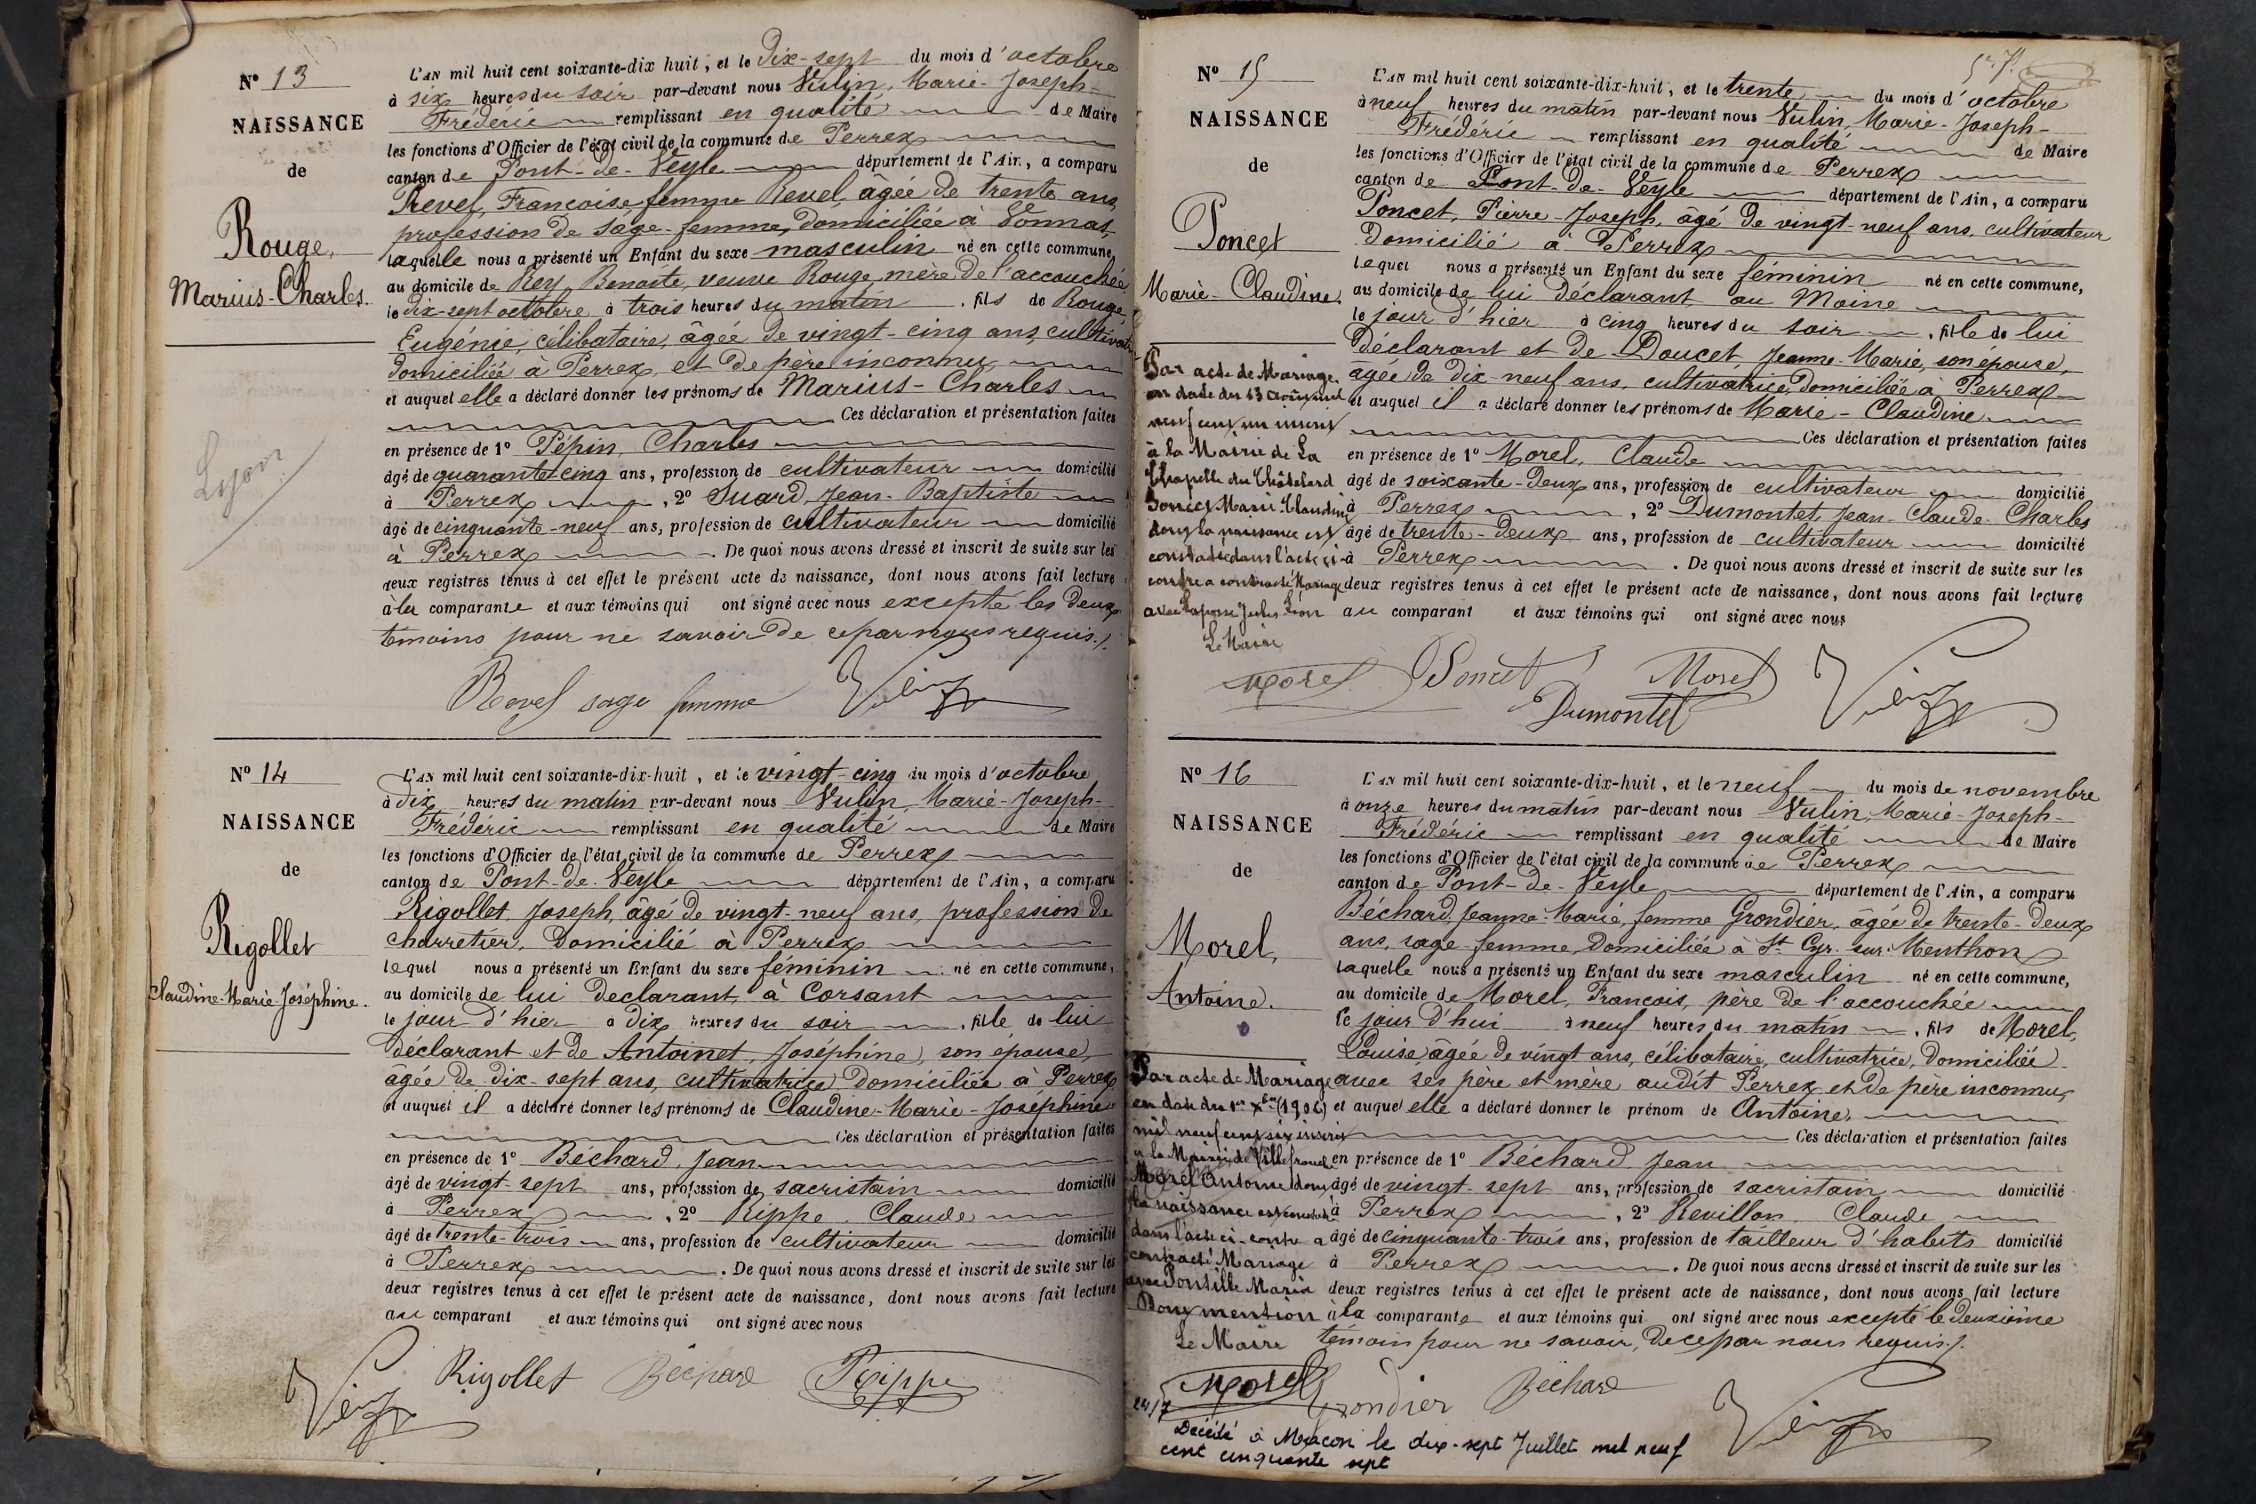 N° 13
NAISSANCE
de
Rouge,
Marius-Charles.
Lyon
L'AN mil huit cent soixante-dix huit, et le Dix-sept du mois d'octobre
à six heures du soir par-devant nous Vulin, Marie-Joseph-
Frédéric remplissant en qualité de Maire
les fonctions d'Officier de l'état civil de la commune de Perrex
canton de Pont-de-Veyle département de l'Ain, a comparu
Revel, Françoise femme Revel, âgée de trente ans,
profession de sage-femme, domiciliée à Vonnas,
laquelle nous a présenté un Enfant du sexe masculin né en cette commune,
au domicile de Rey Benoite, veuve Rouge, mère de l'accouchée
le dix-sept octobre à trois heures du matin, fils de Rouge,
Eugénie, célibataire, âgée de vingt-cinq ans, cultivatr
domiciliée à Perrex, et de père inconnu,
et auquel elle a déclaré donner les prénoms de Marius-Charles
Ces déclaration et présentation faites
en présence de 1° Pépin, Charles
âgé de quarante cinq ans, profession de cultivateur domicilié
à Perrex, 2° Suard, Jean-Baptiste
âgé de cinquante-neuf ans, profession de cultivateur domicilié
à Perrex. De quoi nous avons dressé et inscrit de suite sur les
deux registres tenus à cet effet le présent acte de naissance, dont nous avons fait lecture
à la comparante et aux témoins qui ont signé avec nous excepté les deux
témoins pour ne savoir de ce par nous requis./.
Revel sage femme Vulin
N° 14
NAISSANCE
de
Rigollet
Claudine-Marie-Joséphine.
L'AN mil huit cent soixante-dix-huit, et le vingt-cinq du mois d'octobre
à dix heures du matin par-devant nous Vulin, Marie-Joseph-
Frédéric remplissant en qualité de Maire
les fonctions d'Officier de l'état civil de la commune de Perrex
canton de Pont-de-Veyle département de l'Ain, a comparu
Rigollet Joseph, âgé de vingt-neuf ans, profession de
charretier, domicilié à Perrex
lequel nous a présenté un Enfant du sexe féminin né en cette commune,
au domicile de lui déclarant, à Corsant
le jour d'hier à dix heures du soir, fille de lui
déclarant et de Antoinet, Joséphine, son épouse,
âgée de dix-sept ans, cultivatrice domiciliée à Perrex
et auquel il a déclaré donner les prénoms de Claudine-Marie-Joséphine
Ces déclaration et présentation faites
en présence de 1° Béchard, Jean
âgé de vingt-sept ans, profession de sacristain domicilié
à Perrex, 2° Rippe, Claude
âgé de trente-trois ans, profession de cultivateur domicilié
à Perrex. De quoi nous avons dressé et inscrit de suite sur les
deux registres tenus à cet effet le présent acte de naissance, dont nous avons fait lecture
au comparant et aux témoins qui ont signé avec nous
Vulin Rigollet Béchard Rippe
N° 15
NAISSANCE
de
Poncet
Marie-Claudine.
Par acte de Mariage
en date du 13 août mil
neuf cent un inscrit
à la Mairie de La
Chapelle du Châtelard
Poncet Marie Claudine
dont la naissance est
constatée dans l'acte ci-
contre a contracté Mariage
avec Jules Léon
Le Maire
Morel
L'AN mil huit cent soixante-dix-huit, et le trente du mois d'octobre
à neuf heures du matin par-devant nous Vulin, Marie-Joseph-
Frédéric remplissant en qualité de Maire
les fonctions d'Officier de l'état civil de la commune de Perrex
canton de Pont-de-Veyle département de l'Ain, a comparu
Poncet, Pierre-Joseph, âgé de vingt-neuf ans, cultivateur
domicilié à Perrex
lequel nous a présenté un Enfant du sexe féminin né en cette commune,
au domicile de lui déclarant au Moine
le jour d'hier à cinq heures du soir, fille de lui
déclarant et de Doucet, Jeanne-Marie, son épouse,
âgée de dix-neuf ans, cultivatrice, domiciliée à Perrex
et auquel il a déclaré donner les prénoms de Marie-Claudine
Ces déclaration et présentation faites
en présence de 1° Morel, Claude
âgé de soixante-deux ans, profession de cultivateur domicilié
à Perrex, 2° Dumontet, Jean-Claude-Charles
âgé de trente-deux ans, profession de cultivateur domicilié
à Perrex. De quoi nous avons dressé et inscrit de suite sur les
deux registres tenus à cet effet le présent acte de naissance, dont nous avons fait lecture
au comparant et aux témoins qui ont signé avec nous
Poncet Morel Dumontet Vulin
N° 16
NAISSANCE
de
Morel,
Antoine.
Par acte de Mariage
en date du 1er Xbre (1906)
mil neuf cent six inscrit
à la Mairie de Villefranche
Morel Antoine dont
la naissance est constatée
dans l'acte ci-contre a
contracté Mariage
avec Maria
Dont mention
Le Maire
Morel
L'AN mil huit cent soixante-dix-huit, et le neuf du mois de novembre
à onze heures du matin par-devant nous Vulin, Marie-Joseph-
Frédéric remplissant en qualité de Maire
les fonctions d'Officier de l'état civil de la commune de Perrex
canton de Pont-de-Veyle département de l'Ain, a comparu
Béchard, Jeanne-Marie, femme Grondier, âgée de trente-deux
ans, sage-femme, domiciliée à St Cyr-sur-Menthon
laquelle nous a présenté un Enfant du sexe masculin né en cette commune,
au domicile de Morel, François, père de l'accouchée
le jour d'hui à neuf heures du matin, fils de Morel,
Louise, âgée de vingt ans, célibataire, cultivatrice, domiciliée
avec ses père et mère audit Perrex et de père inconnu,
et auquel elle a déclaré donner le prénom de Antoine,
Ces déclaration et présentation faites
en présence de 1° Béchard Jean
âgé de vingt-sept ans, profession de sacristain domicilié
à Perrex, 2° Revillon, Claude
âgé de cinquante-trois ans, profession de tailleur d'habits domicilié
à Perrex. De quoi nous avons dressé et inscrit de suite sur les
deux registres tenus à cet effet le présent acte de naissance, dont nous avons fait lecture
à la comparante et aux témoins qui ont signé avec nous excepté le deuxième
témoin pour ne savoir, de ce par nous requis./.
Grondier Béchard Vulin
Décédé à Mâcon le dix-sept Juillet mil neuf
cent cinquante sept